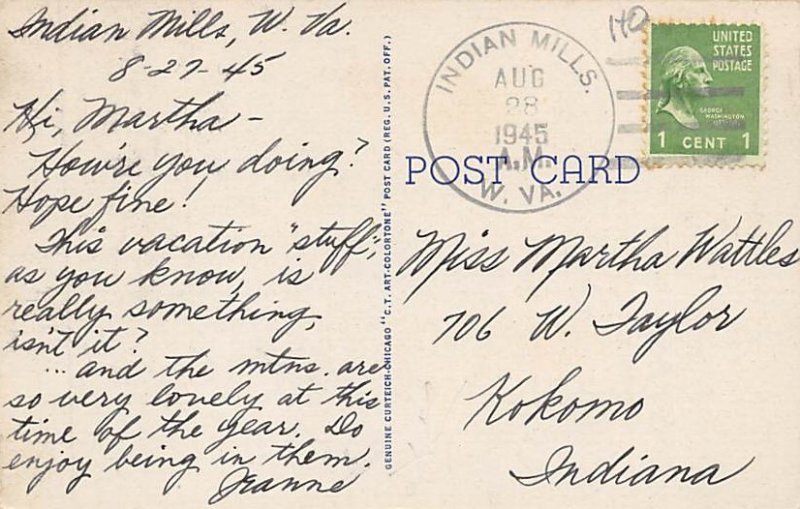 Indian Mills, W. Va.
8-27-45
Hi, Martha -
How're you doing?
Hope fine!
This vacation "stuff",
as you know, is
really something,
isn't it?
... and the mtns. are
so very lovely at this
time of the year. Do
enjoy being in them.
Jeanne
GENUINE CURTEICH-CHICAGO "C.T. ART-COLORTONE" POST CARD (REG. U.S. PAT. OFF.)
INDIAN MILLS.
AUG
28
1945
A.M.
W. VA.
110
UNITED
STATES
POSTAGE
GEORGE
WASHINGTON
1 CENT 1
POST CARD
Miss Martha Wattles
706 W. Taylor
Kokomo
Indiana